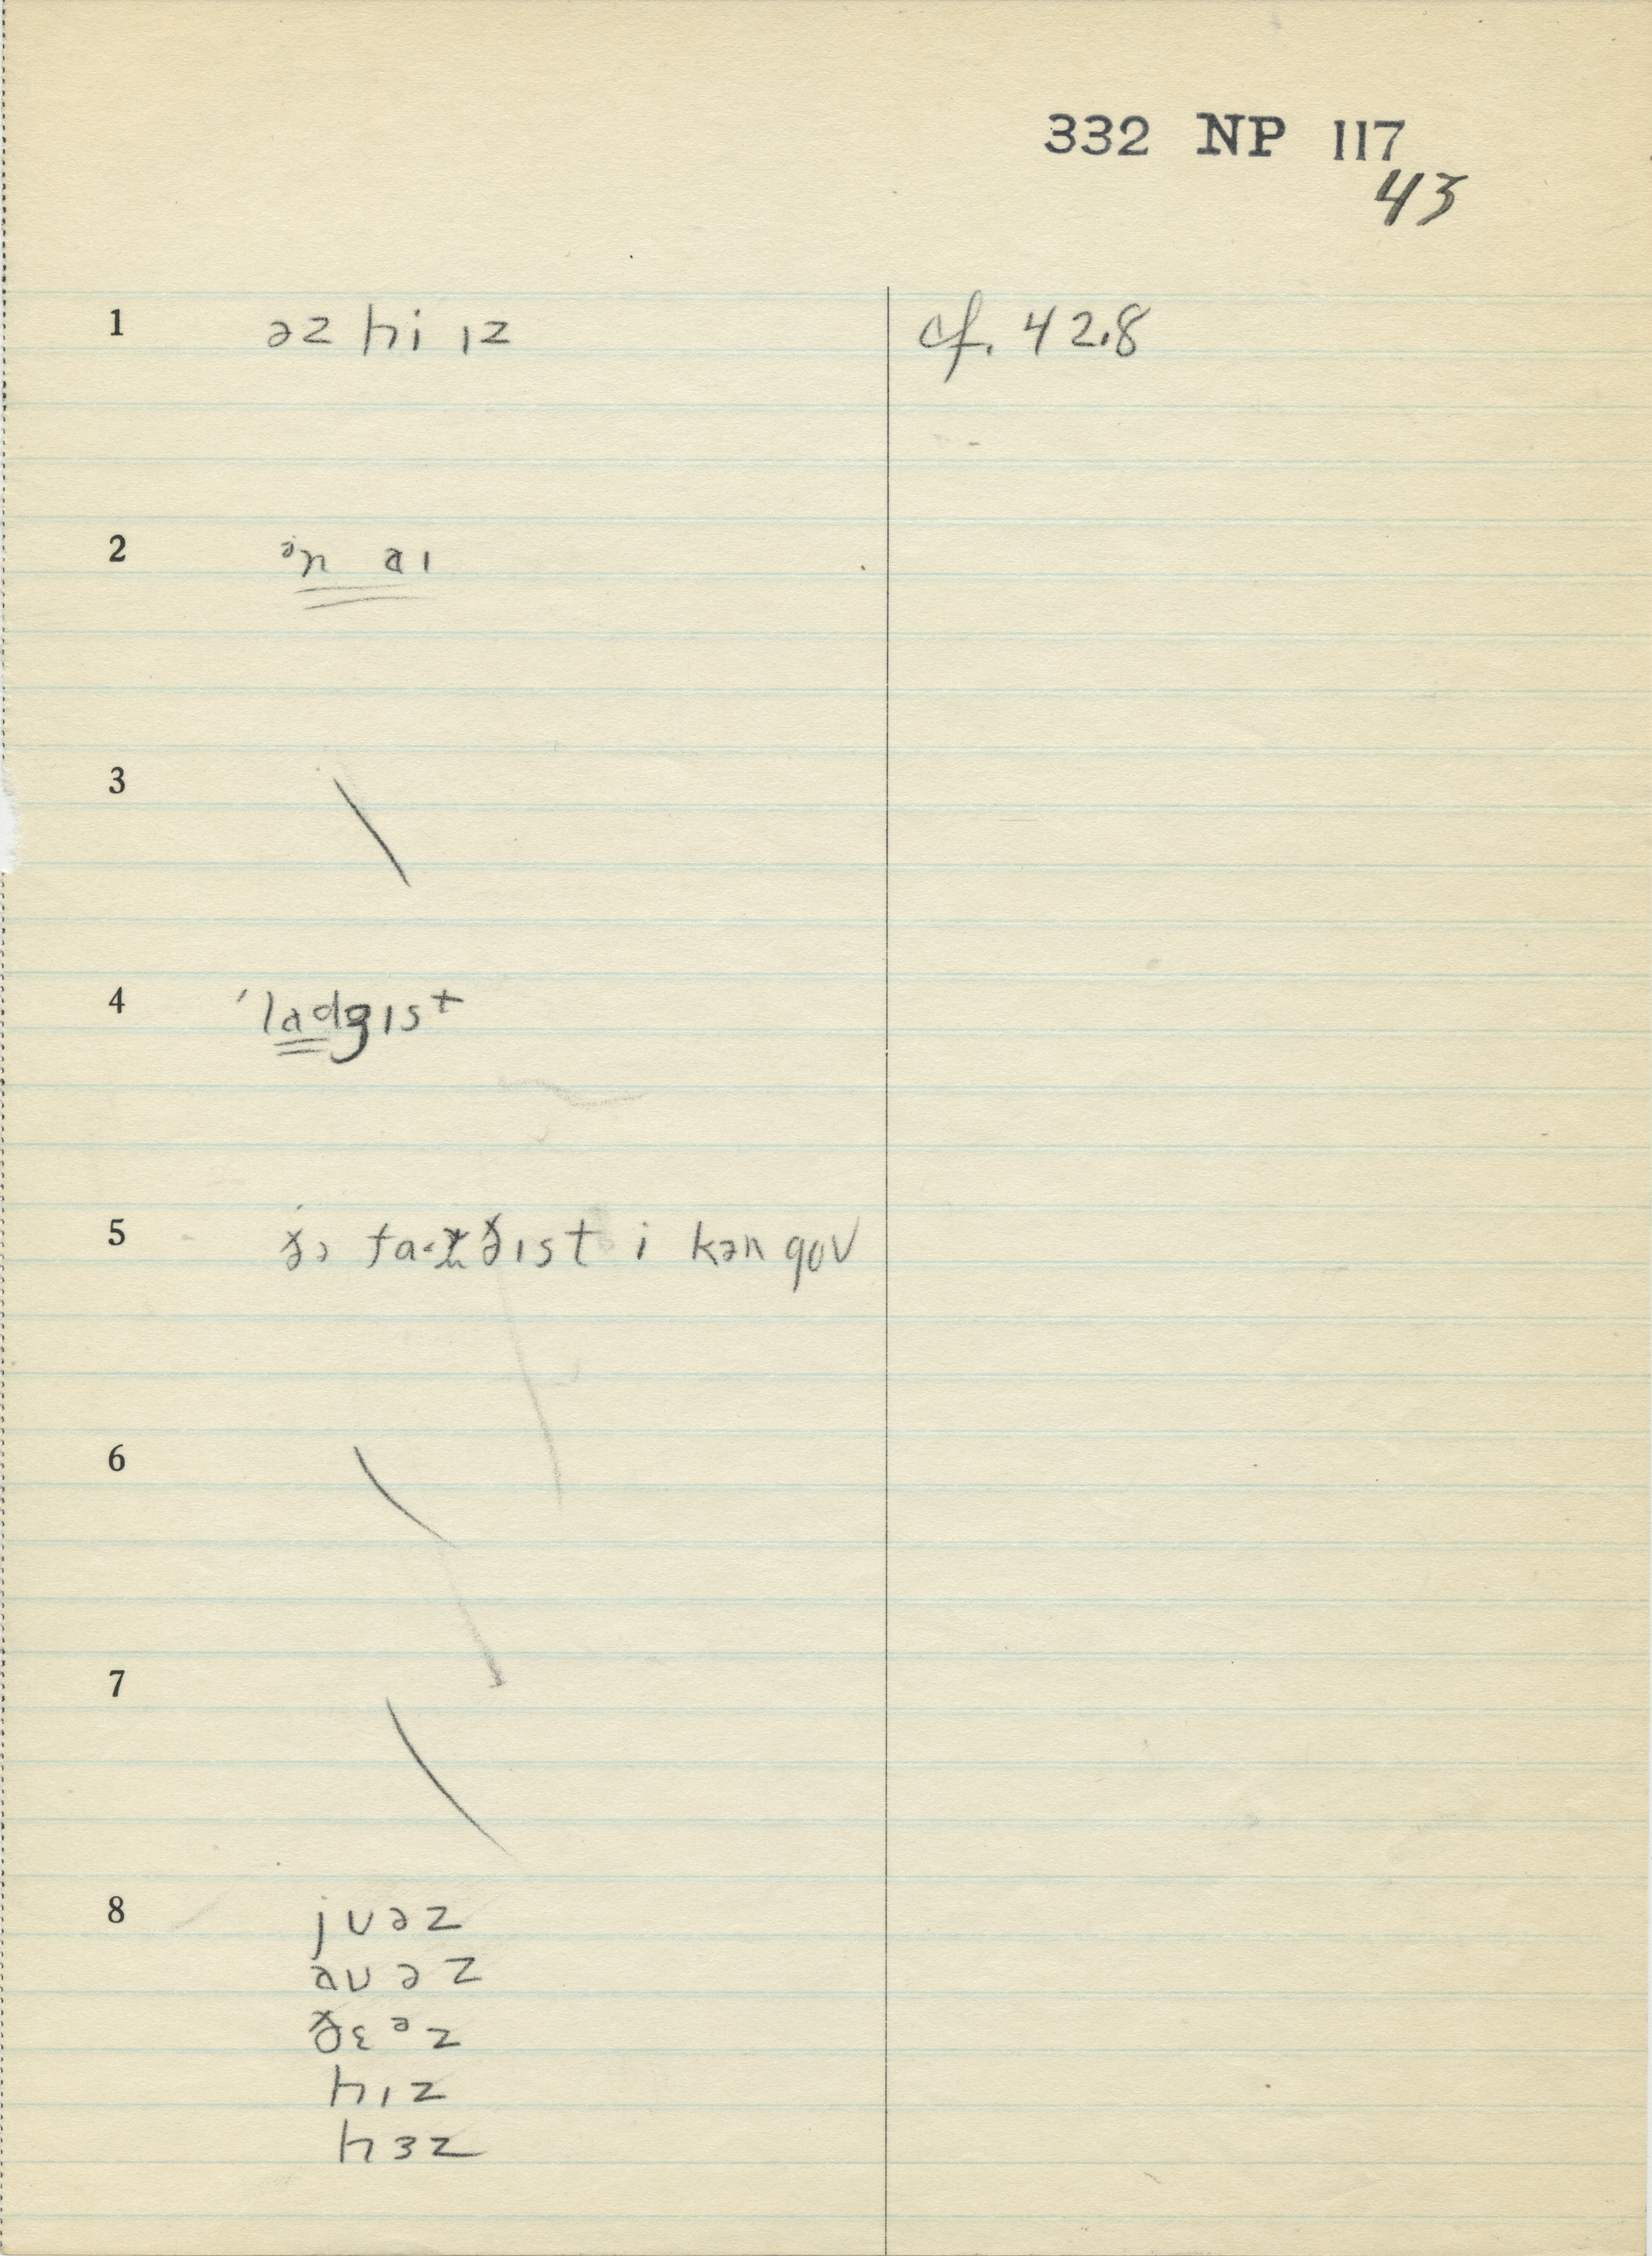 332 NP 117
43
1 əz hi ɪz cf. 42.8
2 ᵊn aɪ
3
4 ˈladgɪst
5 i kən gʊv
6
7
8 jʊəz
aʊəz
ðɛᵊz
hɪz
hɜz